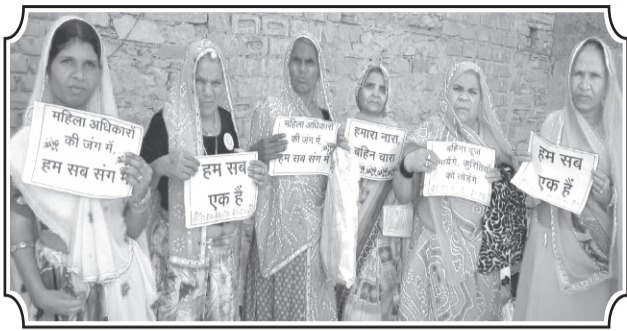 महिला अधिकारों
की जंग में,
हम सब संग में
हम सब
एक हैं
महिला अधिकारों
की जंग में,
हम सब संग में
हमारा नारा,
बहिन चारा
बहिना दूज
कुरितियों
को तोड़ेंगे
हम सब
एक हैं